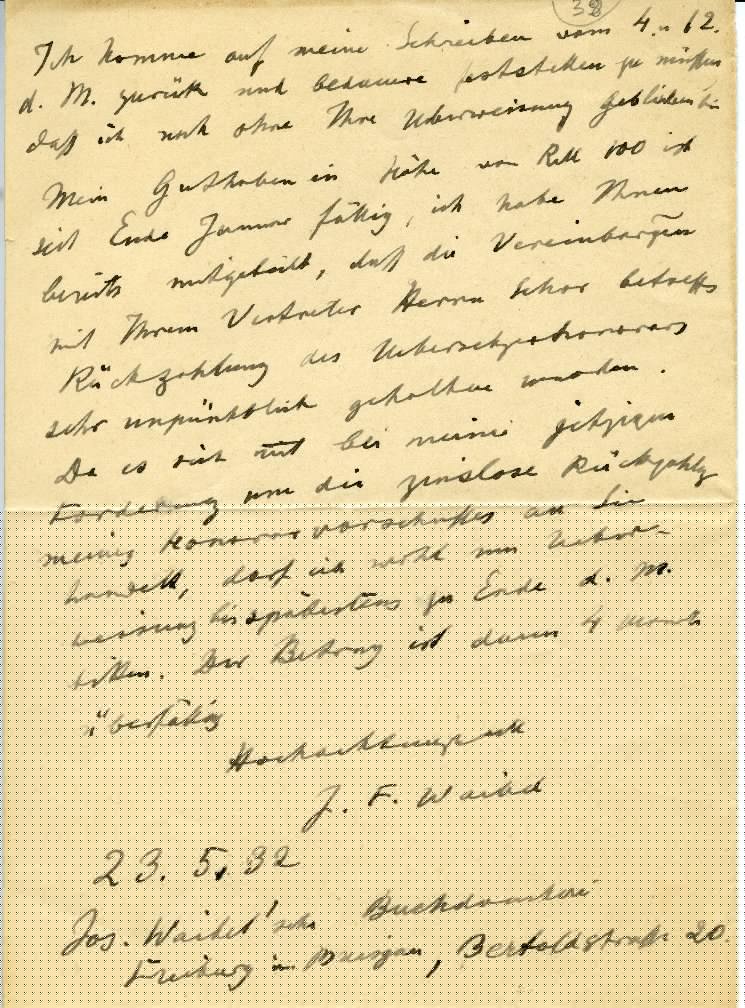 38
Ich komme auf meine Schreiben vom 4. u 12.
d. M. zurück und bedauere feststellen zu müssen
daß ich noch ohne Ihre Ueberweisung geblieben bin
Mein Guthaben in Höhe von RM 100 ist
seit Ende Januar fällig, ich habe Ihnen
bereits mitgeteilt, daß die Vereinbargen
mit Ihrem Vertreter Herrn Schor betreffs
Rückzahlung des
sehr unpünktlich gehalten wurden.
Da es sich mit bei meine jetzigen
Forderung um die zinslose Rückzahlg
meines Honorarvorschußes an Sie
handelt, darf ich wohl um Ueber-
weisung bis spätestens zu Ende d. M.
bitten. Der Betrag ist dann 4 Monate
überfällig
Hochachtungsvoll
J. F. Waibel
23. 5. 32
Jos. Waibel'sche Buchdruckerei
Freiburg im Breisgau, Bertoldstraße 20.